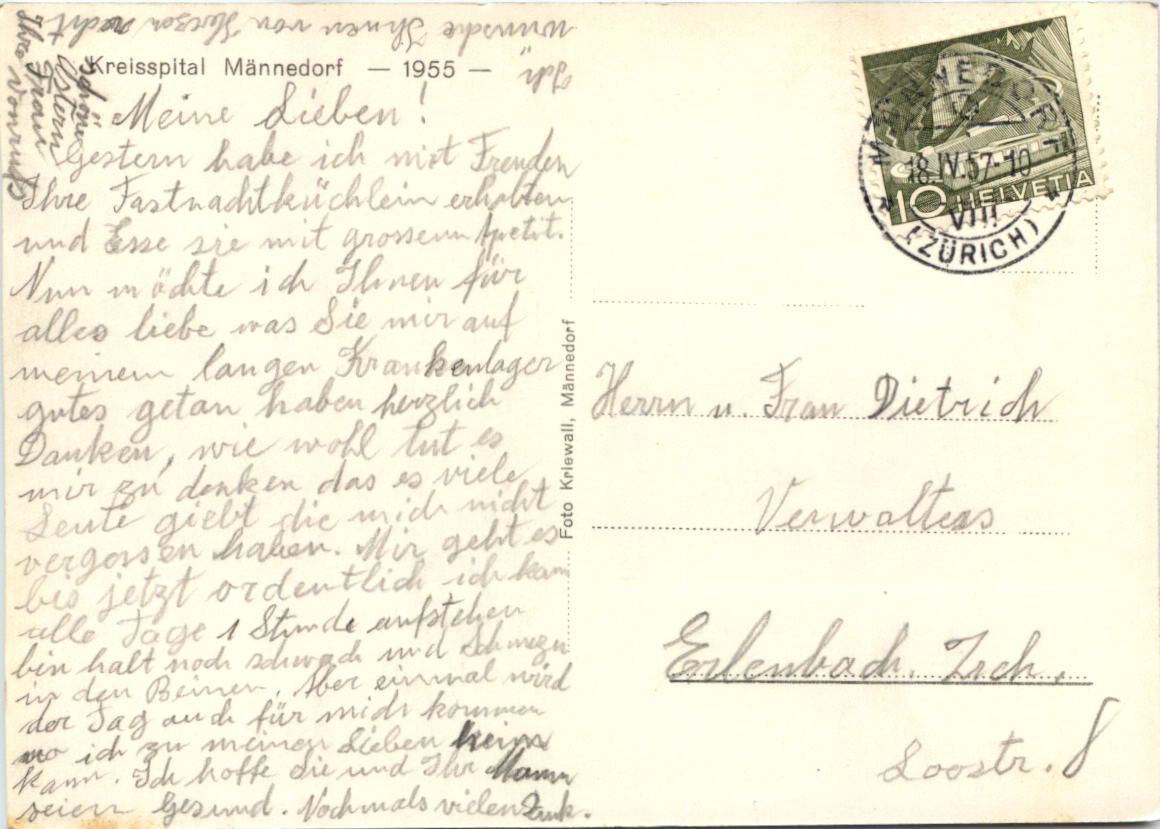 Kreisspital Männedorf — 1955 —
Meine Lieben!
Gestern habe ich mit Freuden
Ihre Fastnachtküchlein erhalten
und Esse sie mit grossem Apetit.
Nun möchte ich Ihnen für
alles liebe was Sie mir auf
meinem langen Krankenlager
gutes getan haben herzlich
Danken, wie wohl tut es
mir zu denken das es viele
Leute giebt die mich nicht
vergessen haben. Mir geht es
bis jetzt ordentlich ich kann
alle Tage 1 Stunde aufstehen
bin halt noch schwach und Schmezen
in den Beinen. Aber einmal wird
der Tag auch für mich kommen
wo ich zu meinen Lieben heim
kann. Ich hoffe Sie und Ihr Mann
seien Gesund. Nochmals vielen Dank.
Ich
wünsche Ihnen von Herzen recht
Schöne
Ostern
+ Frau
Ihre
Foto Kriewall, Männedorf
MÄNNEDORF
18.IV.57-10
VIII
(ZÜRICH)
10 HELVETIA
Herrn u. Frau Dietrich
Verwalters
Erlenbach. Zch.
Loostr. 8